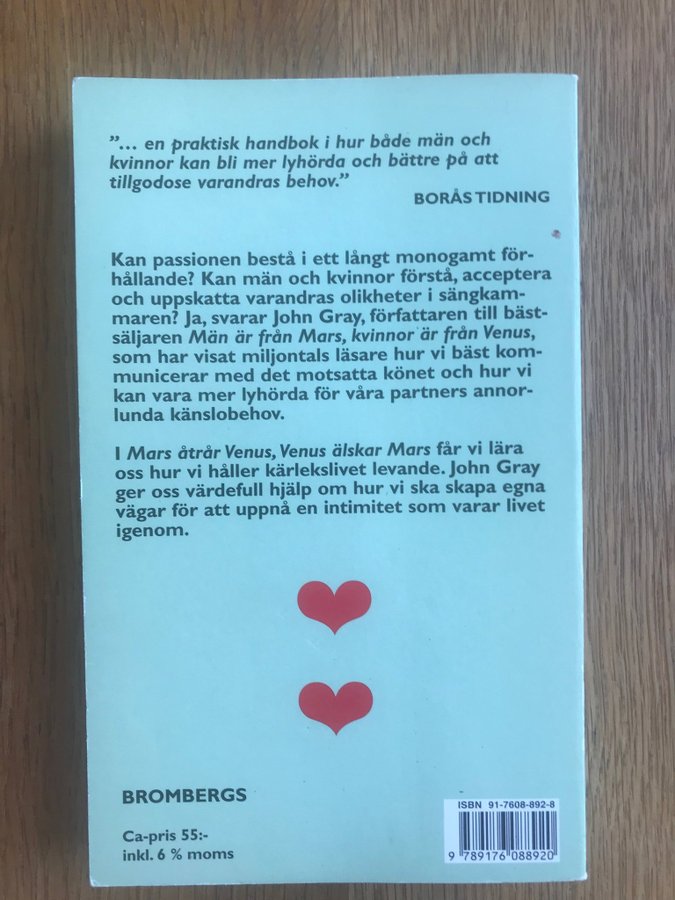 ”... en praktisk handbok i hur både män och
kvinnor kan bli mer lyhörda och bättre på att
tillgodose varandras behov.”
BORÅS TIDNING
Kan passionen bestå i ett långt monogamt för-
hållande? Kan män och kvinnor förstå, acceptera
och uppskatta varandras olikheter i sängkam-
maren? Ja, svarar John Gray, författaren till bäst-
säljaren Män är från Mars, kvinnor är från Venus,
som har visat miljontals läsare hur vi bäst kom-
municerar med det motsatta könet och hur vi
kan vara mer lyhörda för våra partners annor-
lunda känslobehov.
I Mars åtrår Venus, Venus älskar Mars får vi lära
oss hur vi håller kärlekslivet levande. John Gray
ger oss värdefull hjälp om hur vi ska skapa egna
vägar för att uppnå en intimitet som varar livet
igenom.
BROMBERGS
Ca-pris 55:-
inkl. 6 % moms
ISBN 91-7608-892-8
9 789176 088920